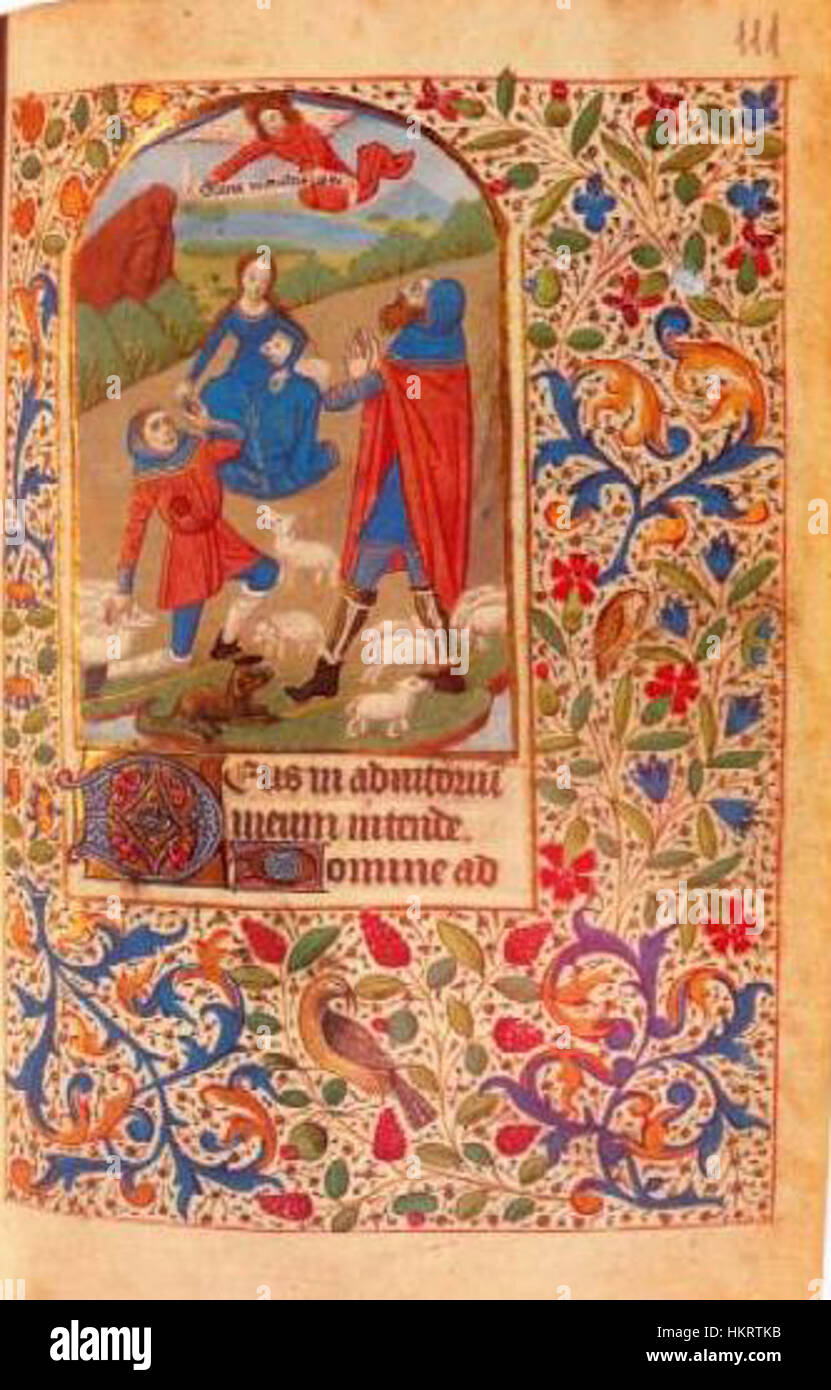 111
Deus in adiutoriu
meum intende.
Domine ad
alamy
Image ID: HKRTKB
www.alamy.com